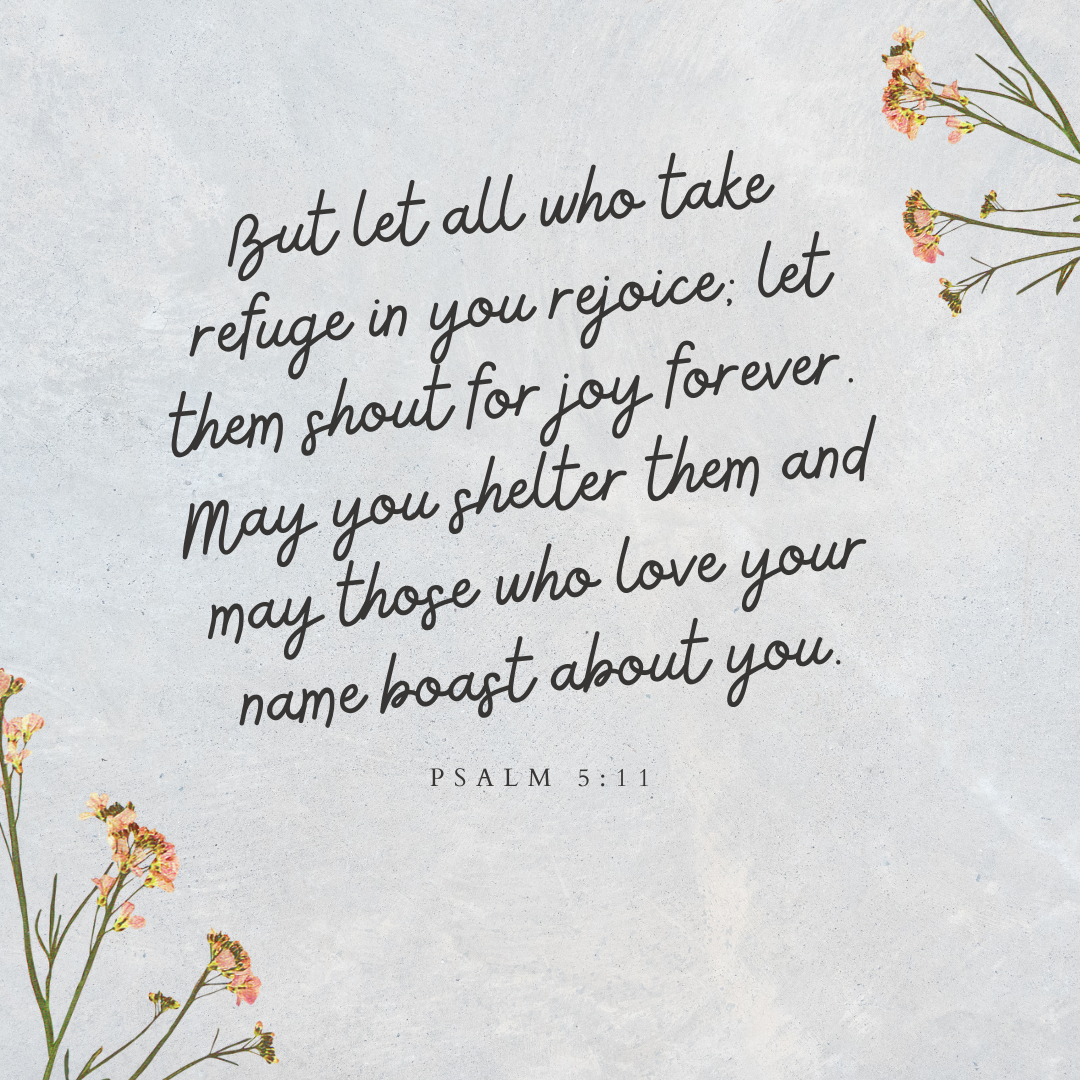 But let all who take
refuge in you rejoice; let
them shout for joy forever.
May you shelter them and
may those who love your
name boast about you.
PSALM 5:11